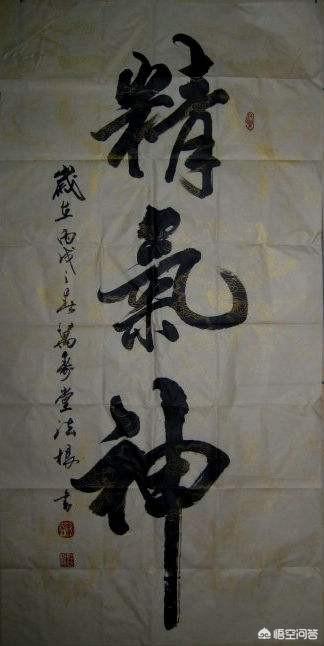 精氣神
歲在丙戌之春萬壽堂法根書
悟空问答